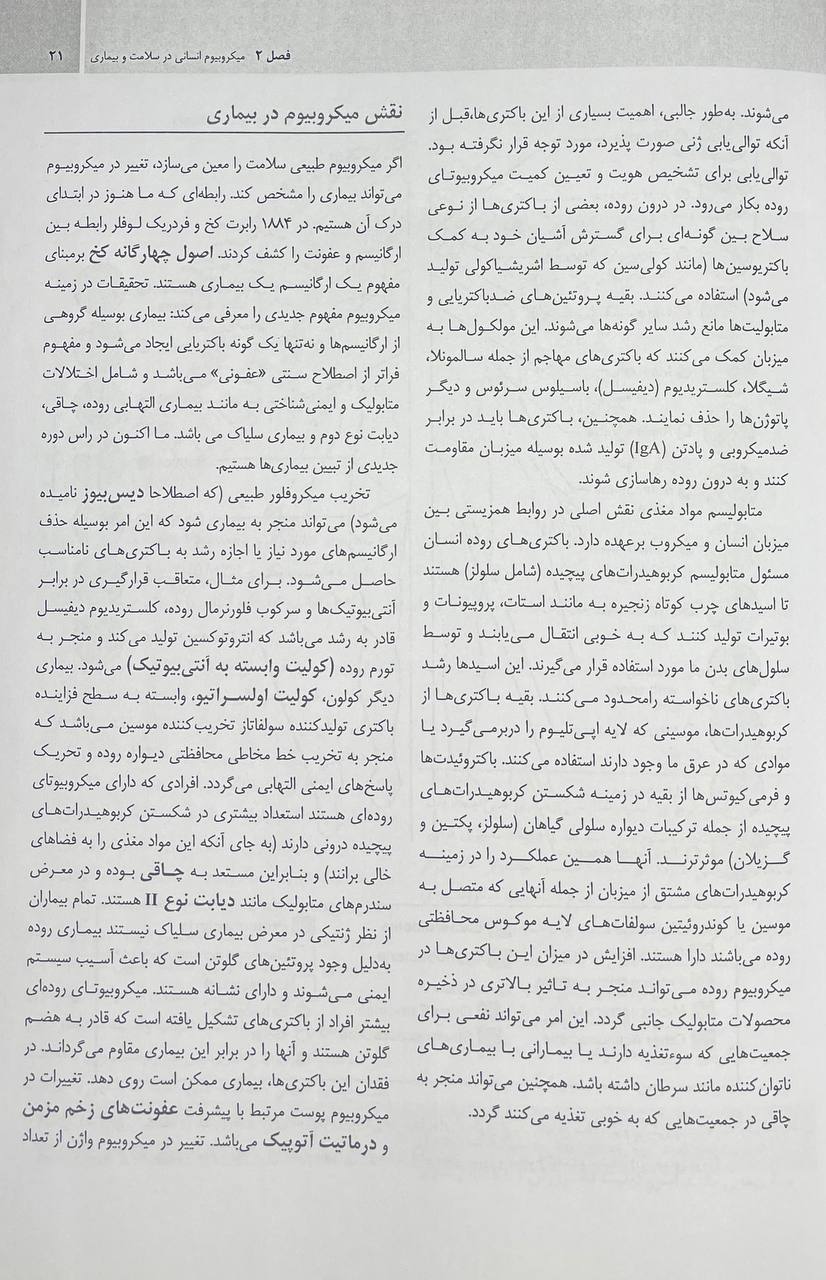 فصل ۲ میکروبیوم انسانی در سلامت و بیماری ۲۱
می‌شوند. به‌طور جالبی، اهمیت بسیاری از این باکتری‌ها،قبل از
آنکه توالی‌یابی ژنی صورت پذیرد، مورد توجه قرار نگرفته بود.
توالی‌یابی برای تشخیص هویت و تعیین کمیت میکروبیوتای
روده بکار می‌رود. در درون روده، بعضی از باکتری‌ها از نوعی
سلاح بین گونه‌ای برای گسترش آشیان خود به کمک
باکتریوسین‌ها (مانند کولی‌سین که توسط اشریشیاکولی تولید
می‌شود) استفاده می‌کنند. بقیه پروتئین‌های ضدباکتریایی و
متابولیت‌ها مانع رشد سایر گونه‌ها می‌شوند. این مولکول‌ها به
میزبان کمک می‌کنند که باکتری‌های مهاجم از جمله سالمونلا،
شیگلا، کلستریدیوم (دیفیسل)، باسیلوس سرئوس و دیگر
پاتوژن‌ها را حذف نمایند. همچنین، باکتری‌ها باید در برابر
ضدمیکروبی و پادتن (IgA) تولید شده بوسیله میزبان مقاومت
کنند و به درون روده رهاسازی شوند.
متابولیسم مواد مغذی نقش اصلی در روابط همزیستی بین
میزبان انسان و میکروب برعهده دارد. باکتری‌های روده انسان
مسئول متابولیسم کربوهیدرات‌های پیچیده (شامل سلولز) هستند
تا اسیدهای چرب کوتاه زنجیره به مانند استات، پروپیونات و
بوتیرات تولید کنند که به خوبی انتقال می‌یابند و توسط
سلول‌های بدن ما مورد استفاده قرار می‌گیرند. این اسیدها رشد
باکتری‌های ناخواسته رامحدود می‌کنند. بقیه باکتری‌ها از
کربوهیدرات‌ها، موسینی که لایه اپی‌تلیوم را دربرمی‌گیرد یا
موادی که در عرق ما وجود دارند استفاده می‌کنند. باکتروئیدت‌ها
و فرمی‌کیوتس‌ها از بقیه در زمینه شکستن کربوهیدرات‌های
پیچیده از جمله ترکیبات دیواره سلولی گیاهان (سلولز، پکتین و
گزیلان) موثرترند. آنها همین عملکرد را در زمینه
کربوهیدرات‌های مشتق از میزبان از جمله آنهایی که متصل به
موسین یا کوندروئیتین سولفات‌های لایه موکوس محافظتی
روده می‌باشند دارا هستند. افزایش در میزان این باکتری‌ها در
میکروبیوم روده می‌تواند منجر به تاثیر بالاتری در ذخیره
محصولات متابولیک جانبی گردد. این امر می‌تواند نفعی برای
جمعیت‌هایی که سوءتغذیه دارند یا بیمارانی با بیماری‌های
ناتوان‌کننده مانند سرطان داشته باشد. همچنین می‌تواند منجر به
چاقی در جمعیت‌هایی که به خوبی تغذیه می‌کنند گردد.
نقش میکروبیوم در بیماری
اگر میکروبیوم طبیعی سلامت را معین می‌سازد، تغییر در میکروبیوم
می‌تواند بیماری را مشخص کند. رابطه‌ای که ما هنوز در ابتدای
درک آن هستیم. در ۱۸۸۴ رابرت کخ و فردریک لوفلر رابطه بین
ارگانیسم و عفونت را کشف کردند. اصول چهارگانه کخ برمبنای
مفهوم یک ارگانیسم یک بیماری هستند. تحقیقات در زمینه
میکروبیوم مفهوم جدیدی را معرفی می‌کند: بیماری بوسیله گروهی
از ارگانیسم‌ها و نه‌تنها یک گونه باکتریایی ایجاد می‌شود و مفهوم
فراتر از اصطلاح سنتی «عفونی» می‌باشد و شامل اختلالات
متابولیک و ایمنی‌شناختی به مانند بیماری التهابی روده، چاقی،
دیابت نوع دوم و بیماری سلیاک می باشد. ما اکنون در راس دوره
جدیدی از تبیین بیماری‌ها هستیم.
تخریب میکروفلور طبیعی (که اصطلاحا دیس‌بیوز نامیده
می‌شود) می‌تواند منجر به بیماری شود که این امر بوسیله حذف
ارگانیسم‌های مورد نیاز یا اجازه رشد به باکتری‌های نامناسب
حاصل می‌شود. برای مثال، متعاقب قرارگیری در برابر
آنتی‌بیوتیک‌ها و سرکوب فلورنرمال روده، کلستریدیوم دیفیسل
قادر به رشد می‌باشد که انتروتوکسین تولید می‌کند و منجر به
تورم روده (کولیت وابسته به آنتی‌بیوتیک) می‌شود. بیماری
دیگر کولون، کولیت اولسراتیو، وابسته به سطح فزاینده
باکتری تولیدکننده سولفاتاز تخریب‌کننده موسین می‌باشد که
منجر به تخریب خط مخاطی محافظتی دیواره روده و تحریک
پاسخ‌های ایمنی التهابی می‌گردد. افرادی که دارای میکروبیوتای
روده‌ای هستند استعداد بیشتری در شکستن کربوهیدرات‌های
پیچیده درونی دارند (به جای آنکه این مواد مغذی را به فضاهای
خالی برانند) و بنابراین مستعد به چاقی بوده و در معرض
سندرم‌های متابولیک مانند دیابت نوع II هستند. تمام بیماران
از نظر ژنتیکی در معرض بیماری سلیاک نیستند بیماری روده
به‌دلیل وجود پروتئین‌های گلوتن است که باعث آسیب سیستم
ایمنی می‌شوند و دارای نشانه هستند. میکروبیوتای روده‌ای
بیشتر افراد از باکتری‌های تشکیل یافته است که قادر به هضم
گلوتن هستند و آنها را در برابر این بیماری مقاوم می‌گرداند. در
فقدان این باکتری‌ها، بیماری ممکن است روی دهد. تغییرات در
میکروبیوم پوست مرتبط با پیشرفت عفونت‌های زخم مزمن
و درماتیت آتوپیک می‌باشد. تغییر در میکروبیوم واژن از تعداد